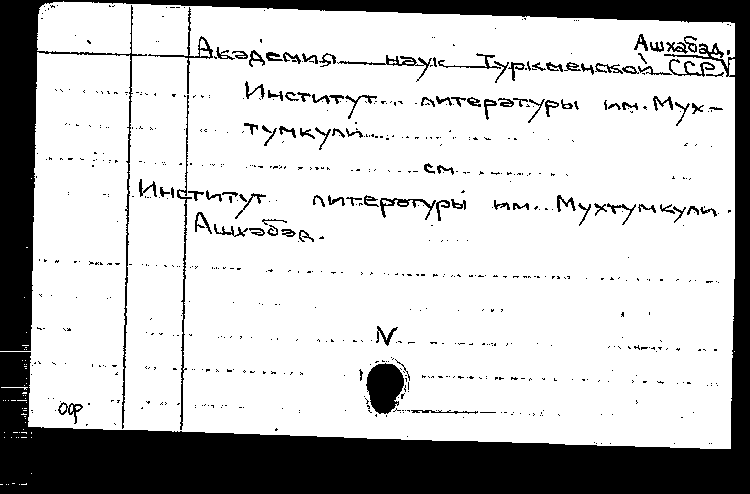 Ашхабад.
Академия наук Туркменской ССР
Институт литературы им. Мух-
тумкули
см
Институт литературы им. Мухтумкули.
Ашхабад.
V